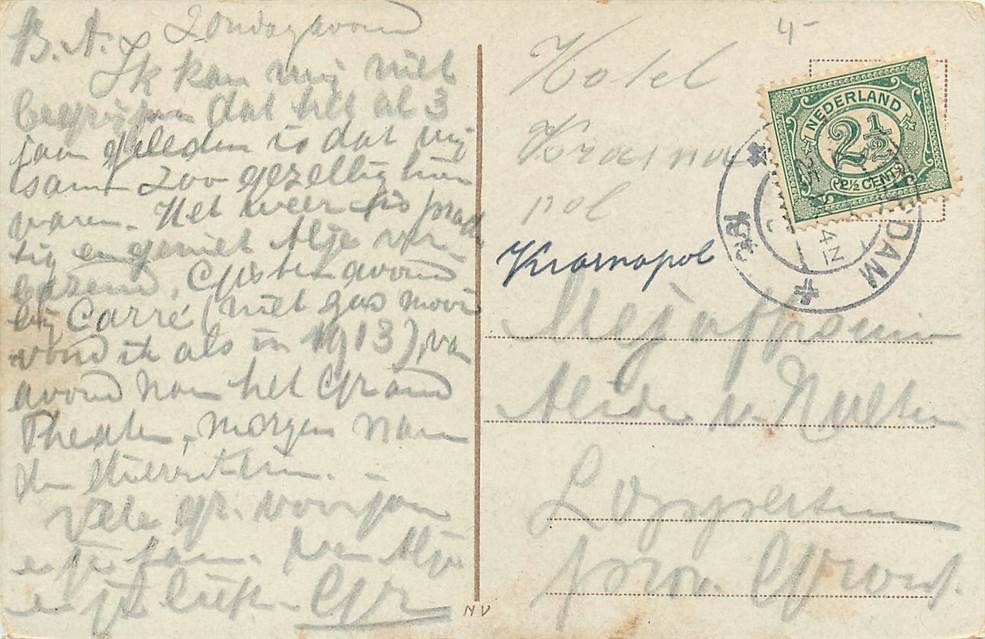 B. A. Zondagavond
Ik kan mij niet
begrijpen dat het al 3
jaar geleden is dat wij
samen zoo gezellig hier
waren. Het weer is prach
tig en geniet Altje ver
bazend. Gisteren avond
bij Carré (niet zoo mooi
vond ik als in 1913), van
avond naar het Grand
Theater, morgen naar
de
Vele gr. voor jou
e fam. van Altje
e je liefh. Gr
Hotel
Krasna
pol
Krasnapol
Mejuffrouw
Alida v. Hulten
Loppersum
prov. Gron.
4-
NEDERLAND
2 1/2
2 1/2 CENT
DAM
4N
NV